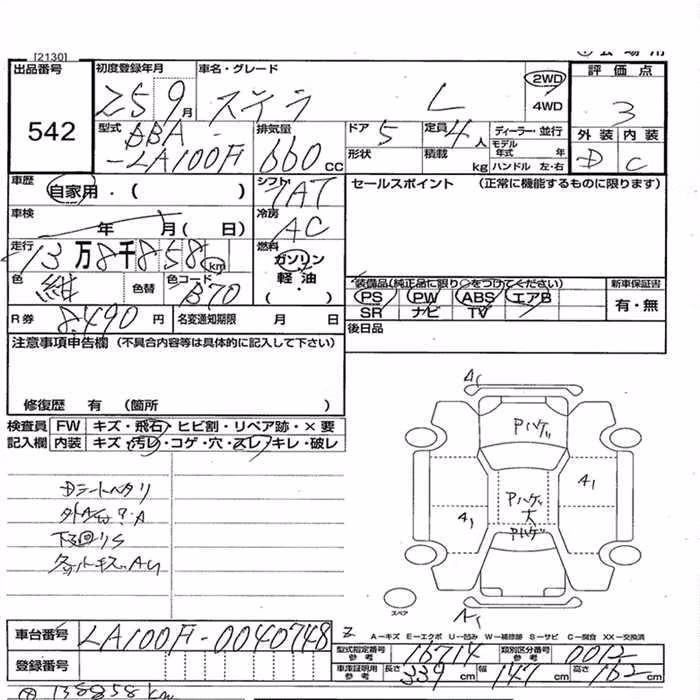 [2130]
出品番号
542
初度登録年月 車名・グレード
25 9月 ステラ L
2WD
4WD
評価点
3
外装 内装
D C
型式
DBA-
-LA100F
排気量
660 cc
ドア 5 定員 4人
形状 積載 kg
ディーラー・並行
モデル年式 年
ハンドル 左・右
車歴
自家用・( )
シフト
7AT
セールスポイント (正常に機能するものに限ります)
車検
年 月( 日)
冷房
AC
走行
13万8千858km
燃料
ガソリン
軽油
・( )
色
紺
色替 色コード
B70
装備品(純正品に限り○をつけてください)
PS PW ABS エアB
SR ナビ TV
新車保証書
有・無
R券 8,490円 名変通知期限 月 日
後日品
注意事項申告欄 (不具合内容等は具体的に記入して下さい)
修復歴 有 (箇所 )
検査員 FW キズ・飛石・ヒビ割・リペア跡・×要
記入欄 内装 キズ・汚レ・コゲ・穴・スレ・キレ・破レ
Dシートヘタリ
下回りS
A1
Pハゲ
A1
Pハゲ大
Pハゲ
A1
スペア
A1
A－キズ E－エクボ U－凹み W－補修跡 S－サビ C－腐食 XX－交換済
車台番号 LA100F-0040748
型式指定番号 参考 16714 類別区分番号 参考 0013
登録番号
車庫証明用 参考 長さ 339cm 幅 147cm 高さ 162cm
138858km